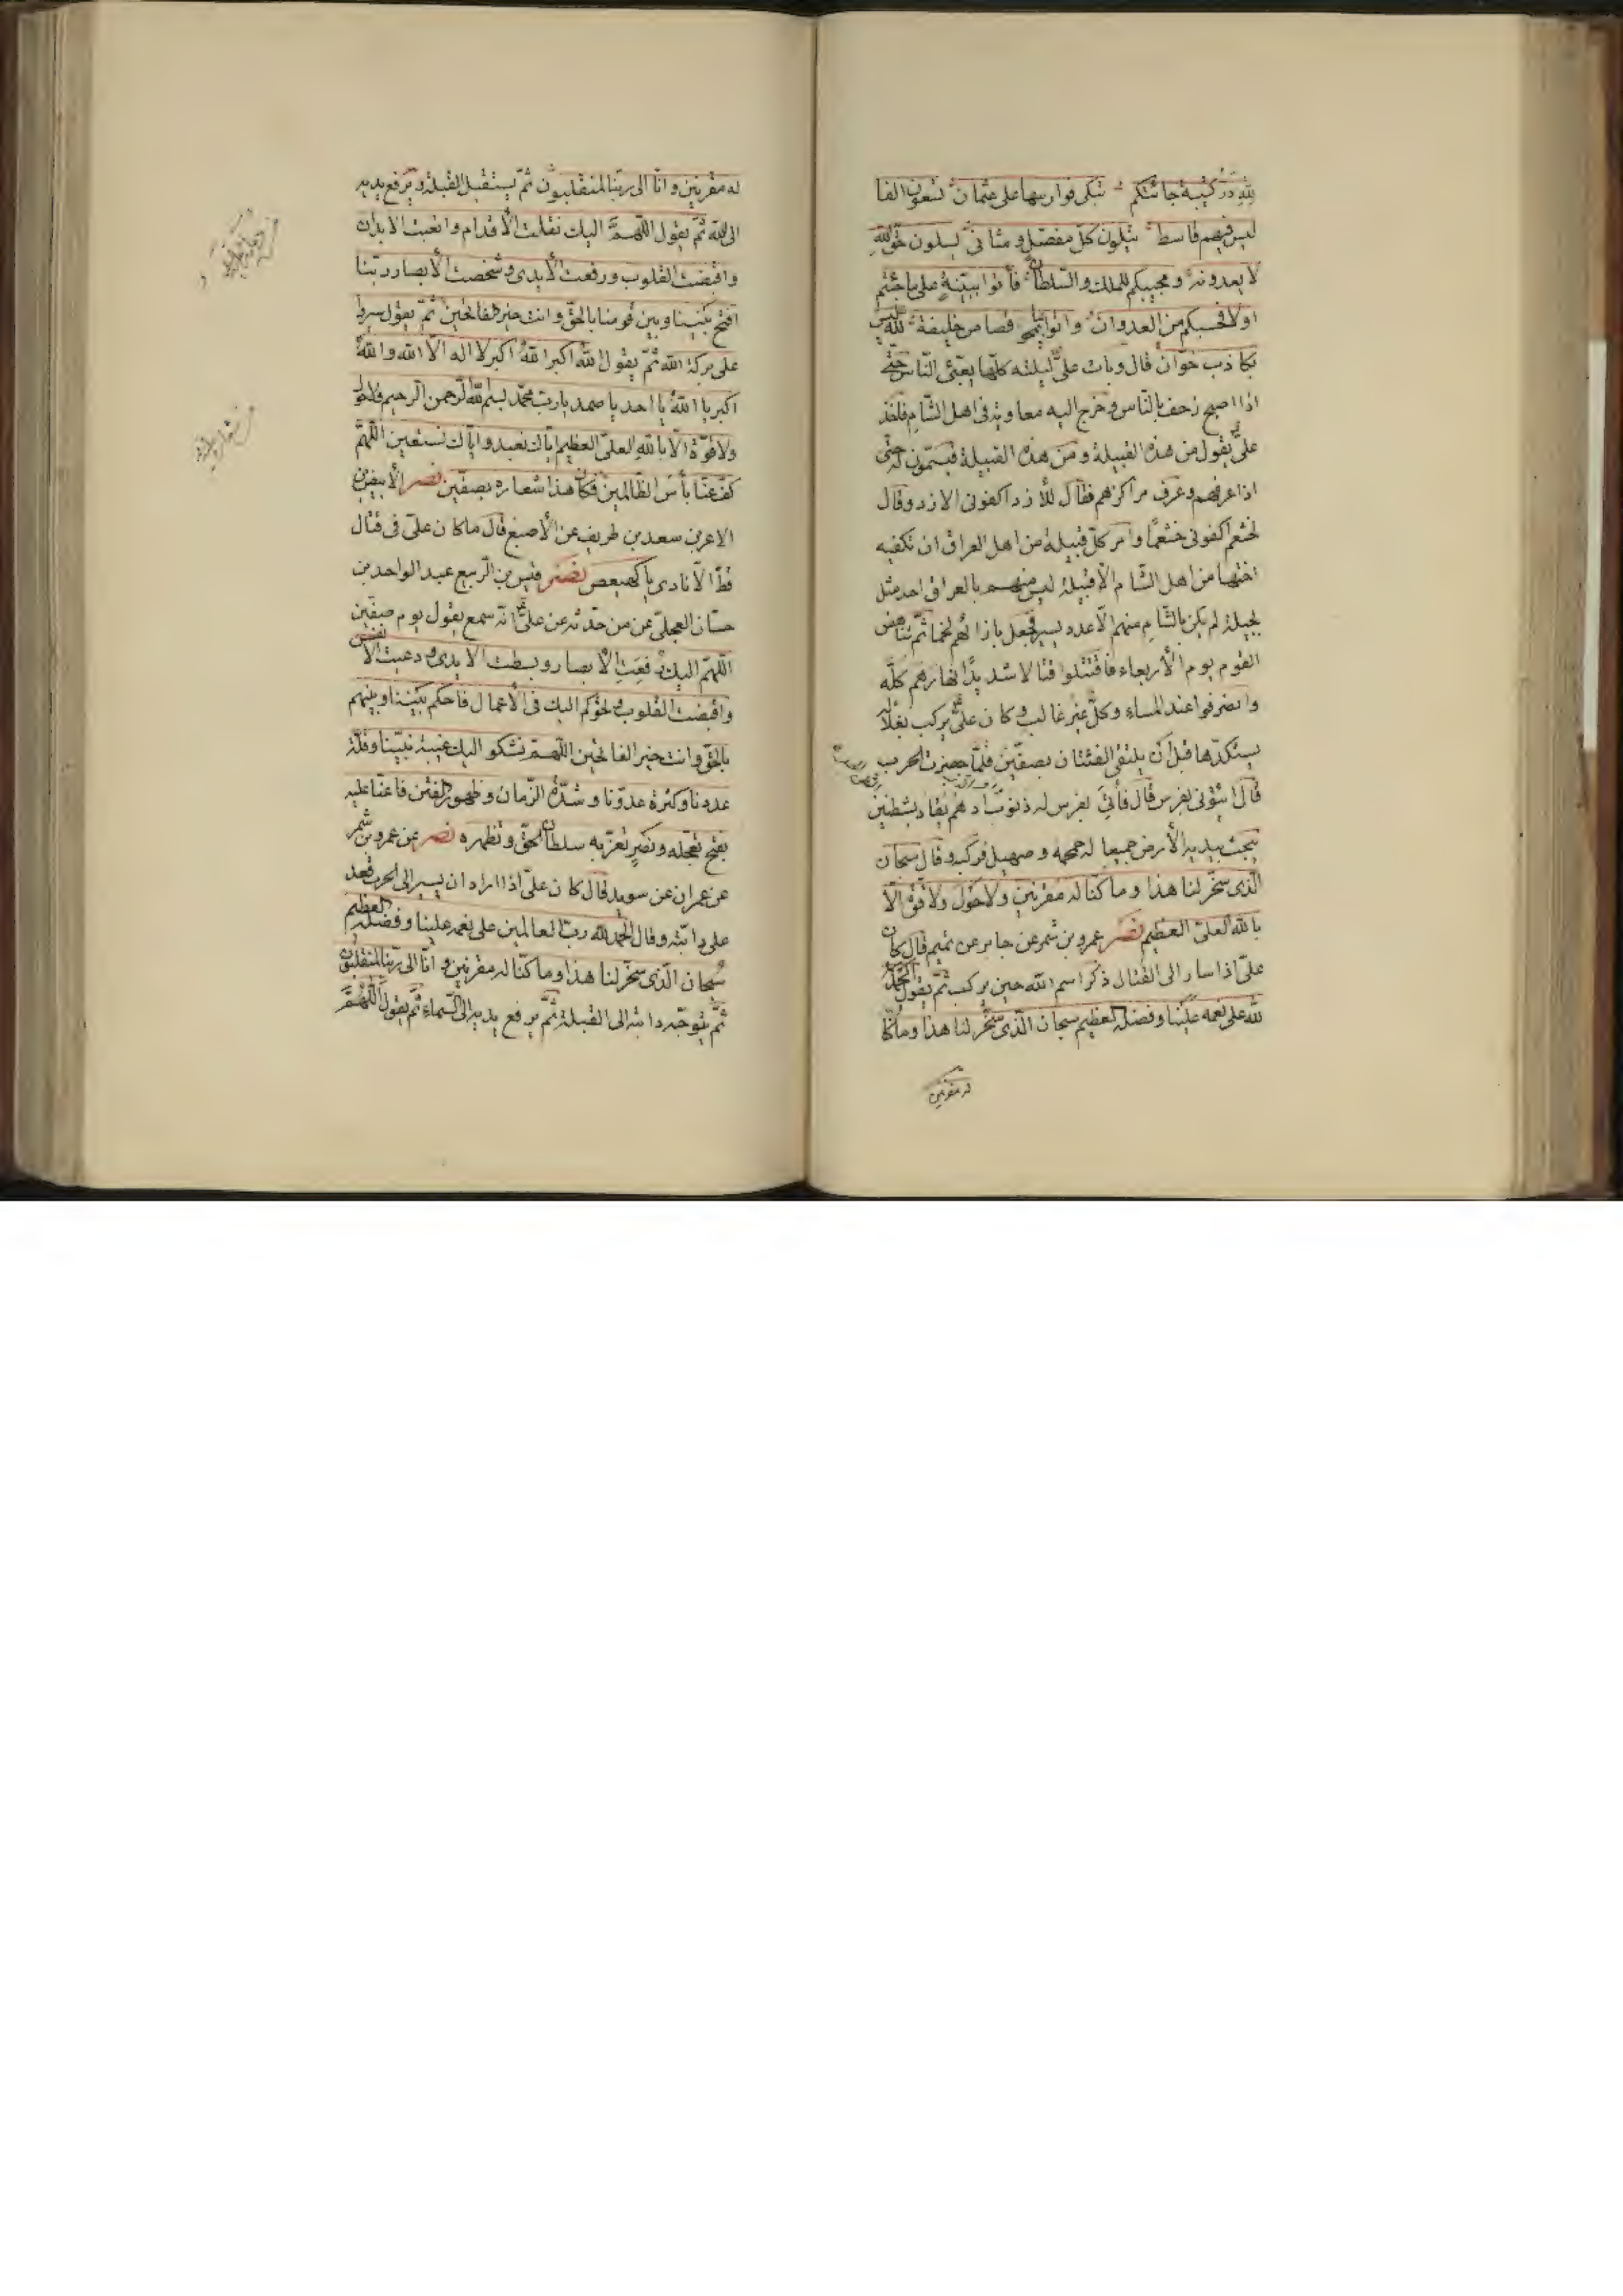 لله درّ كتيبة جائتكم تبكى فوارسها على عثمان تسعون الفا
ليس فيهم قاسط يتلون كلّ مفصّل و مثانى يسلون حقّ الله
لا يعدونه و مجيبكم للملك والسّلطان فأتوا ببيّنة على ما جئتم
اولا فحسبكم من العدوان وأتوا بما قصاص خليفة لله ليس
بكاذب خوّان قال وبات علىّ ليلته كلّها يعبّئ النّاس حتّى
اذا اصبح زحف بالنّاس و خرج اليه معاوية فى اهل الشّام فاخذ
علىّ يقول من هذه القبيلة و من هذه القبيلة فيسمّون له حتى
اذا عرفهم وعرف مراكزهم فقال للأزد اكفونى الازد وقال
لخثعم اكفونى خثعما وامر كلّ قبيلة من اهل العراق ان تكفيه
اختها من اهل الشّام الّا قبيلة ليس منهم بالعراق احد مثل
بجيلة لم يكن بالشّام منهم الّا عدد يسير فجعل بازائهم لخما ثمّ تناهض
القوم يوم الأربعاء فاقتتلوا قتالا شديدًا نهارهم كلّه
وانصرفوا عند المساء وكلّ غير غالب و كان علىّ يركب بغلا له
يستلذّها قبل أن يلتقى الفئتان بصفّين فلمّا حضرت الحرب
قال ائتونى بفرس قال فأتىَ بفرس له ذنوب ادهم يقاد بشطنين
يبحث بيديه الأرض جميعا له حمحمة و صهيل فركبه و قال سبحان
الّذى سخّر لنا هذا وما كنّا له مقرنين ولا حَوْلَ ولا قُوّة الّا
بالله العلىّ العظيم نصر عمرو بن شمر عن جابر عن تميم قال كان
علىّ اذا سار الى القتال ذكر اسم الله حين يركب ثمّ يقول الحمد
لله على نعمه علينا وفضله العظيم سبحان الّذى سخّر لنا هذا وما كنّا
له مقرنين
له مقرنين و انّا الى ربّنا لمنقلبون ثمّ يستقبل القبلة و يرفع يديه
الى الله ثمّ يقول اللّهمّ اليك نقلت الأقدام و اتعبت الابدان
وافضت القلوب ورفعت الأيدى و شخصت الأبصار ربّنا
افتح بيننا وبين قومنا بالحقّ وانت خير الفاتحين ثمّ يقول سيروا
على بركة الله ثمّ يقول الله اكبر الله اكبر لا اله الّا الله والله
اكبر يا الله يا احد يا صمد يا ربّ محمّد بسم الله الرّحمن الرحيم لا حول
ولا قوّة الّا بالله العلىّ العظيم ايّاك نعبد و ايّاك نستعين اللّهمّ
كفّ عنّا بأس الظّالمين فكان هذا شعاره بصفّين نصر الأبيض بن
الاغر بن سعد بن طريف عن الأصبغ قال ما كان علىّ فى قتال
قطّ الّا نادى يا كهيعص نصر قيس بن الرّبيع عبد الواحد بن
حسّان العجلىّ عن من حدّثه عن علىّ انّه سمع يقول يوم صفّين
اللّهمّ اليك رفعت الأبصار وبسطت الايدى و دعيت الألسن
وافضت القلوب و تحوكم اليك فى الأعمال فاحكم بيننا وبينهم
بالحقّ و انت خير الفاتحين اللّهمّ نشكو اليك غيبة نبيّنا وقلّة
عددنا وكثرة عدوّنا و شدّة الزّمان و ظهور الفتن فاعنّا عليه
بفتح تعجّله و نصرٍ تعزّ به سلطان الحقّ و تظهره نصر عن عمرو بن شمر
عن عمران عن سويد قال كان علىّ اذا اراد ان يسير الى الحرب قعد
على دابّته و قال الحمد لله ربّ العالمين على نعمه علينا و فضله العظيم
سُبحان الّذى سخّر لنا هذا و ما كنّا له مقرنين و انّا الى ربّنا لمنقلبون
ثمّ يتوجّه دابّته الى القبلة ثمّ يرفع يديه الى السّماء ثمّ يقول اللّهمّ